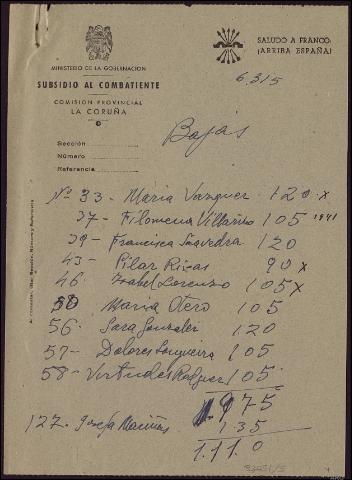 SALUDO A FRANCO:
¡ARRIBA ESPAÑA!
MINISTERIO DE LA GOBERNACION
SUBSIDIO AL COMBATIENTE
COMISION PROVINCIAL
LA CORUÑA
6.315
Bajas
Sección
Número
Referencia
Nº 33 - Maria Vazquez 120 x
37 - Filomena Villariño 105 1941
39 - Francisca Saavedra 120
43 - Pilar Rivas 90 x
46 Isabel Lorenzo 105 x
50 Maria Otero 105
56 - Sara Gonzalez 120
57 - Dolores 105
58 - Virtudes 105
1.975
127. Josefa 135
1.11.0